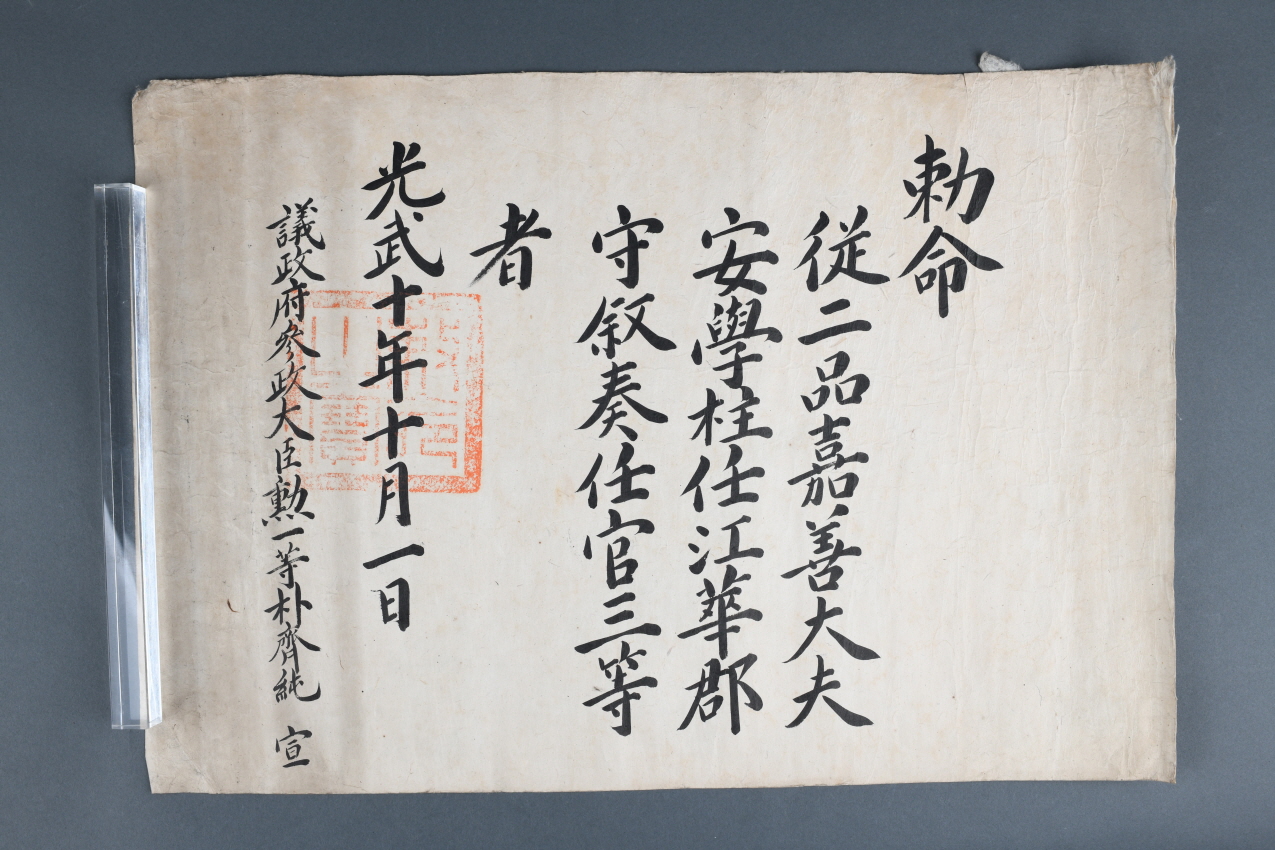 勅命
從二品嘉善大夫
安學柱任江華郡
守叙奏任官三等
者
光武十年十月一日
議政府參政大臣勲一等朴齊純 宣